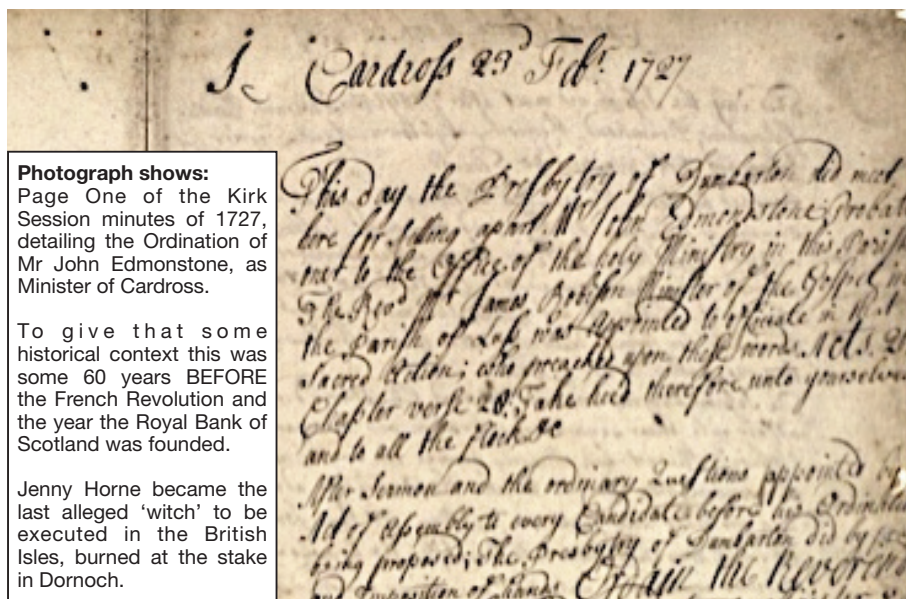 1 Cardross 23d Febr. 1727
Photograph shows:
Page One of the Kirk
Session minutes of 1727,
detailing the Ordination of
Mr John Edmonstone, as
Minister of Cardross.
To give that some
historical context this was
some 60 years BEFORE
the French Revolution and
the year the Royal Bank of
Scotland was founded.
Jenny Horne became the
last alleged ‘witch’ to be
executed in the British
Isles, burned at the stake
in Dornoch.
This day the Presbytry of Dumbarton did meet
here for setting apart Mr John Edmondstone Probati
oner to the Office of the holy Ministry in this Parish
The Revd Mr James Robison Minister of the Gospel in
the Parish of Luss, was Appointed to officiate in that
Sacred Action; who preached upon these words Acts. 20
Chapter verse 28. Take heed therefore unto yourselves
and to all the flock &c
After Sermon and the ordinary Questions appointed by
Act of Assembly to every Candidate before his Ordinatio
being proposed; The Presbytry of Dumbarton did by
and Imposition of hands Ordain the Reverend